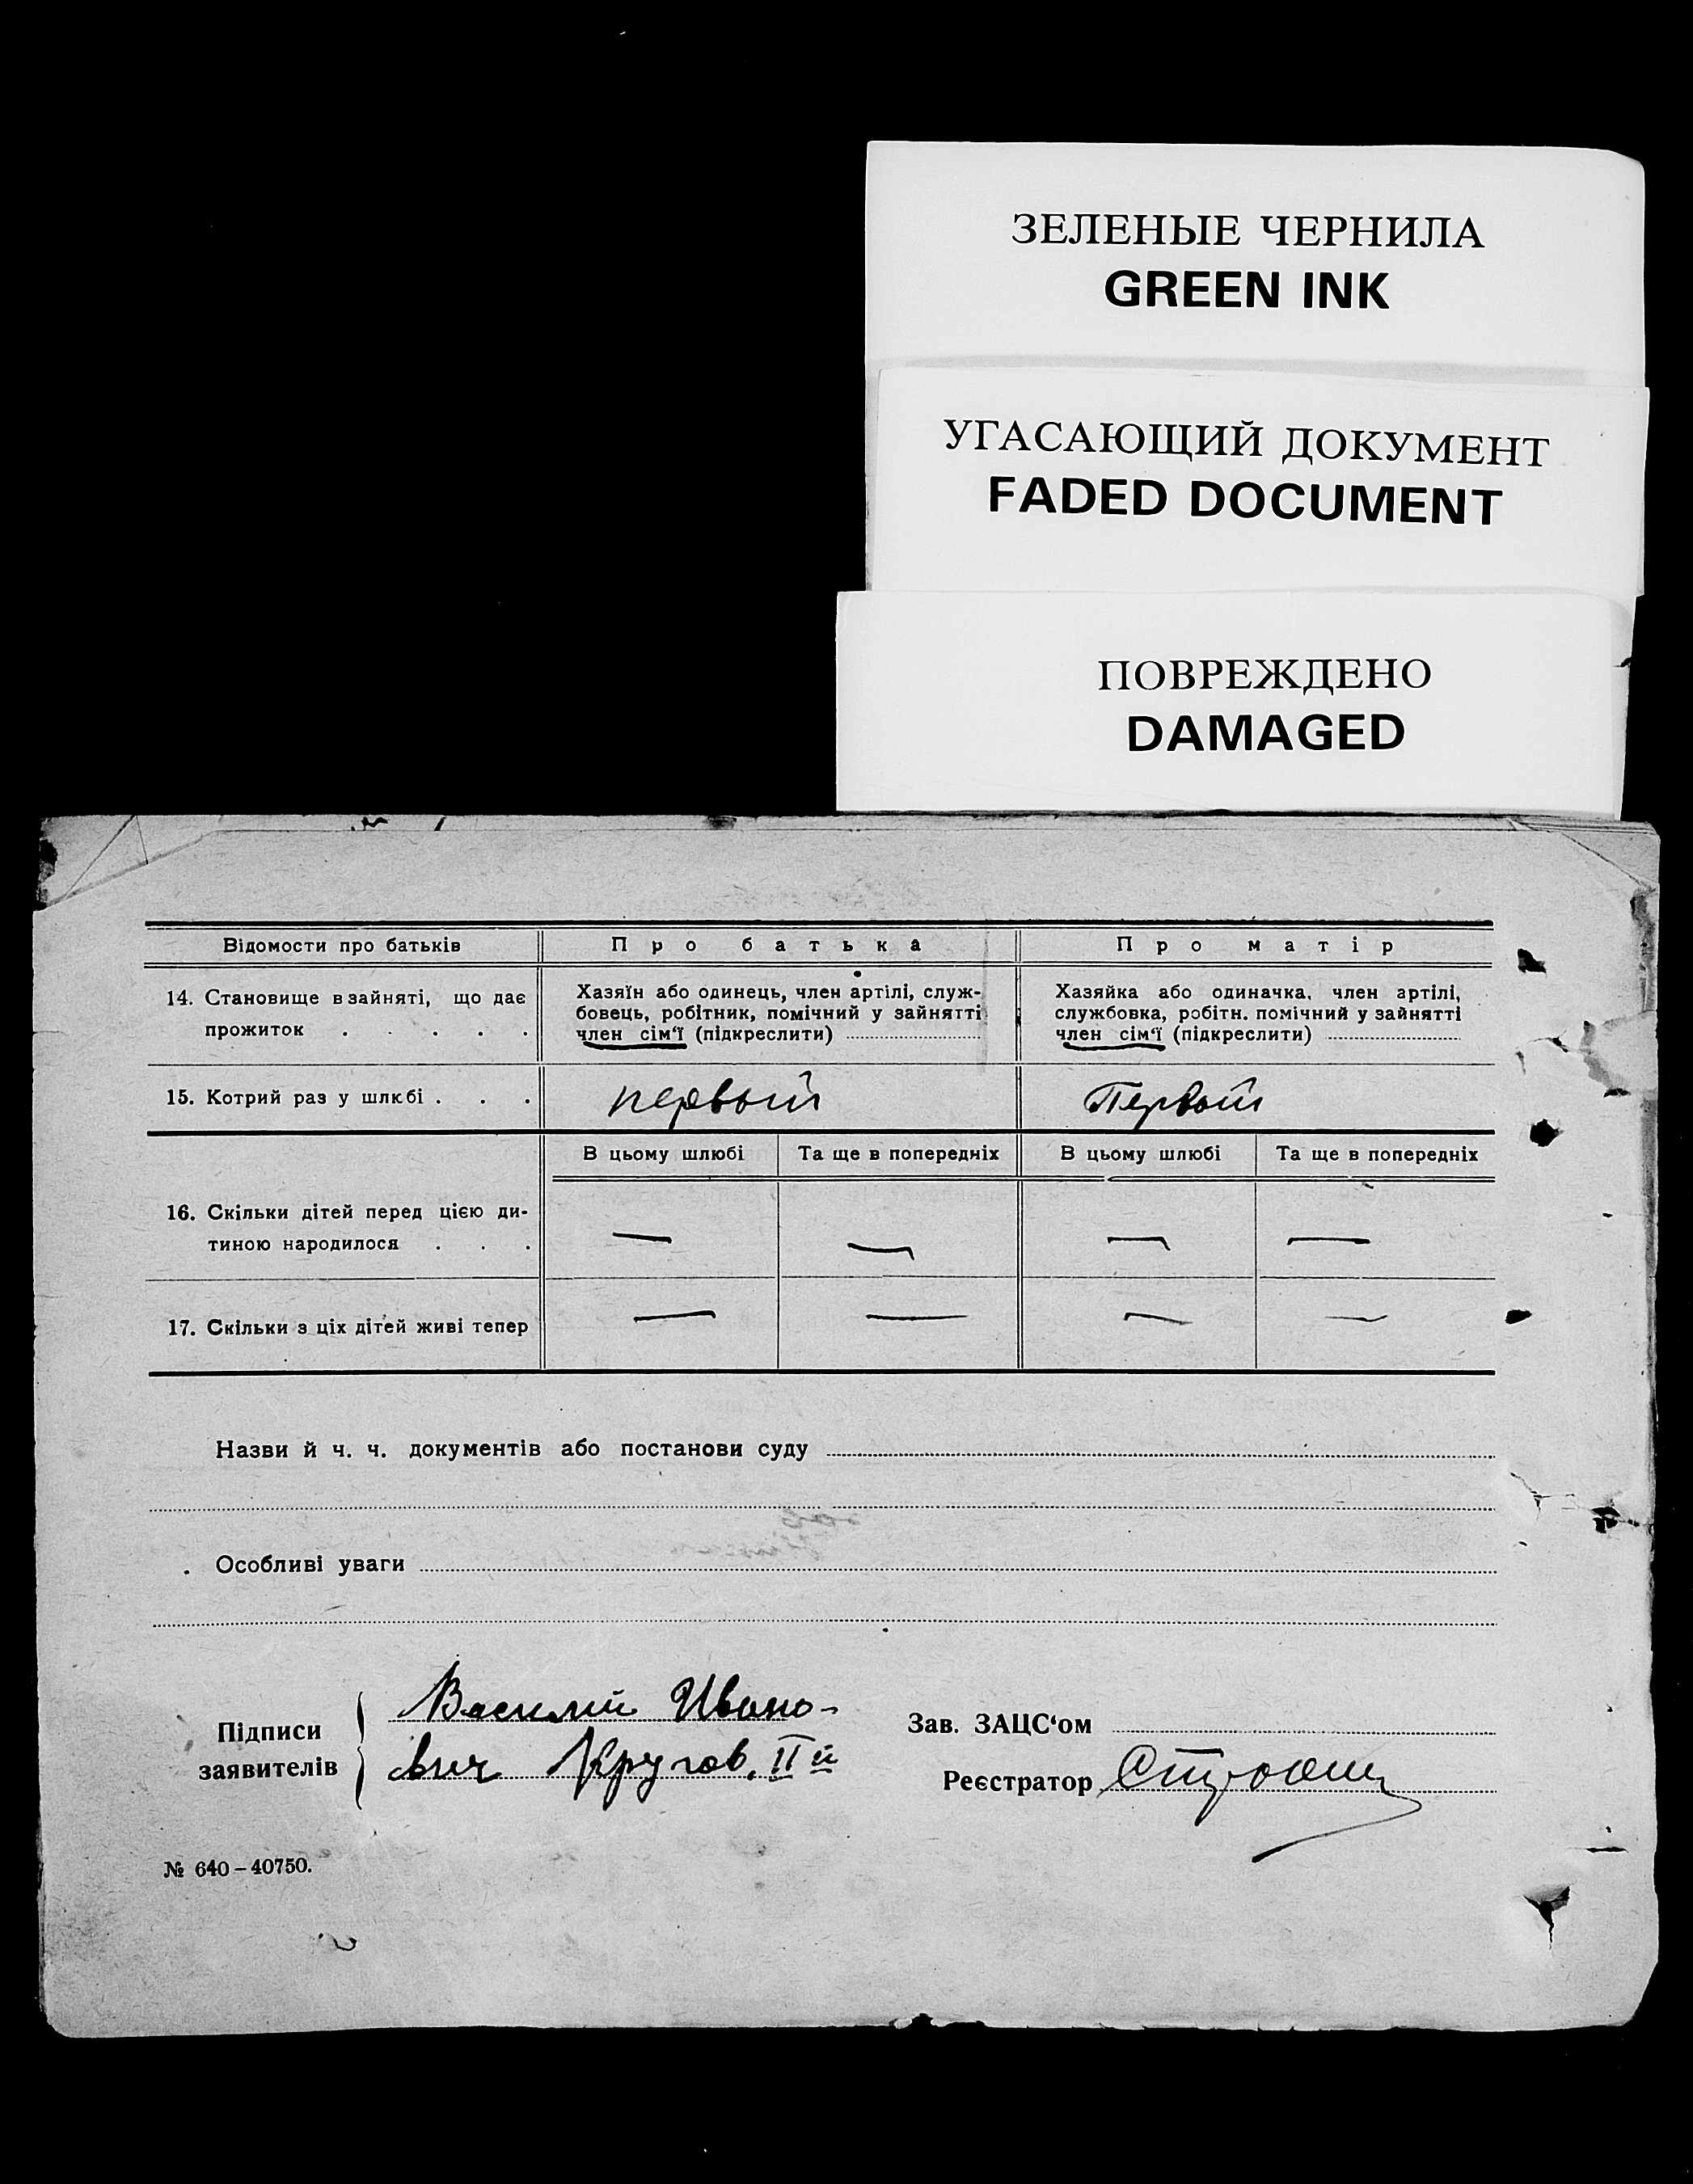 ЗЕЛЕНЫЕ ЧЕРНИЛА
GREEN INK
УГАСАЮЩИЙ ДОКУМЕНТ
FADED DOCUMENT
ПОВРЕЖДЕНО
DAMAGED
Відомости про батьків
Про батька
Про матір
14. Становище в зайняті, що дає
прожиток . . . . .
Хазяїн або одинець, член артілі, служ-
бовець, робітник, помічний у зайнятті
член сім‘ї (підкреслити)
Хазяйка або одиначка, член артілі,
службовка, робітн. помічний у зайнятті
член сім‘ї (підкреслити)
15. Котрий раз у шлюбі . . .
первый
Первый
В цьому шлюбі
Та ще в попередніх
В цьому шлюбі
Та ще в попередніх
16. Скільки дітей перед цією ди-
тиною народилося . . .
— — — —
17. Скільки з ціх дітей живі тепер
— — — —
Назви й ч. ч. документів або постанови суду
Особливі уваги
Підписи
заявителів
Василий Ивано-
вич Кругов. II й
Зав. ЗАЦС‘ом
Реєстратор
№ 640–40750.